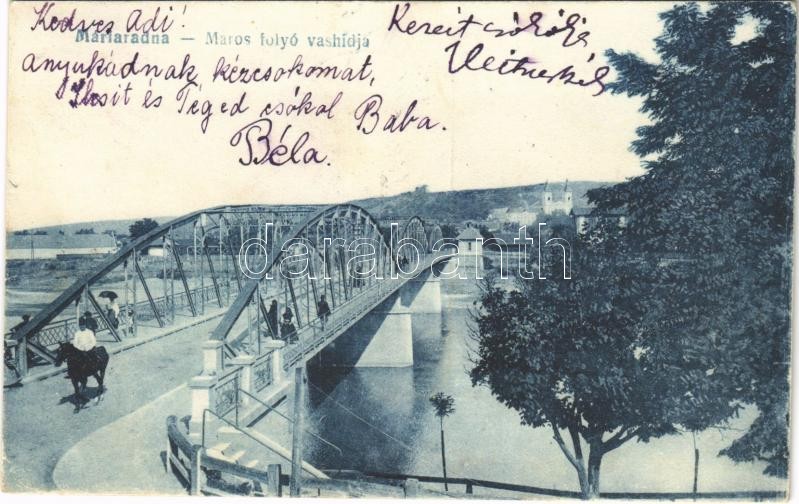 Kedves Adi!
Máriaradna — Maros folyó vashídja
anyukádnak kézcsokomat,
és Téged csókol Baba.
Béla.
csókolja
darabanth